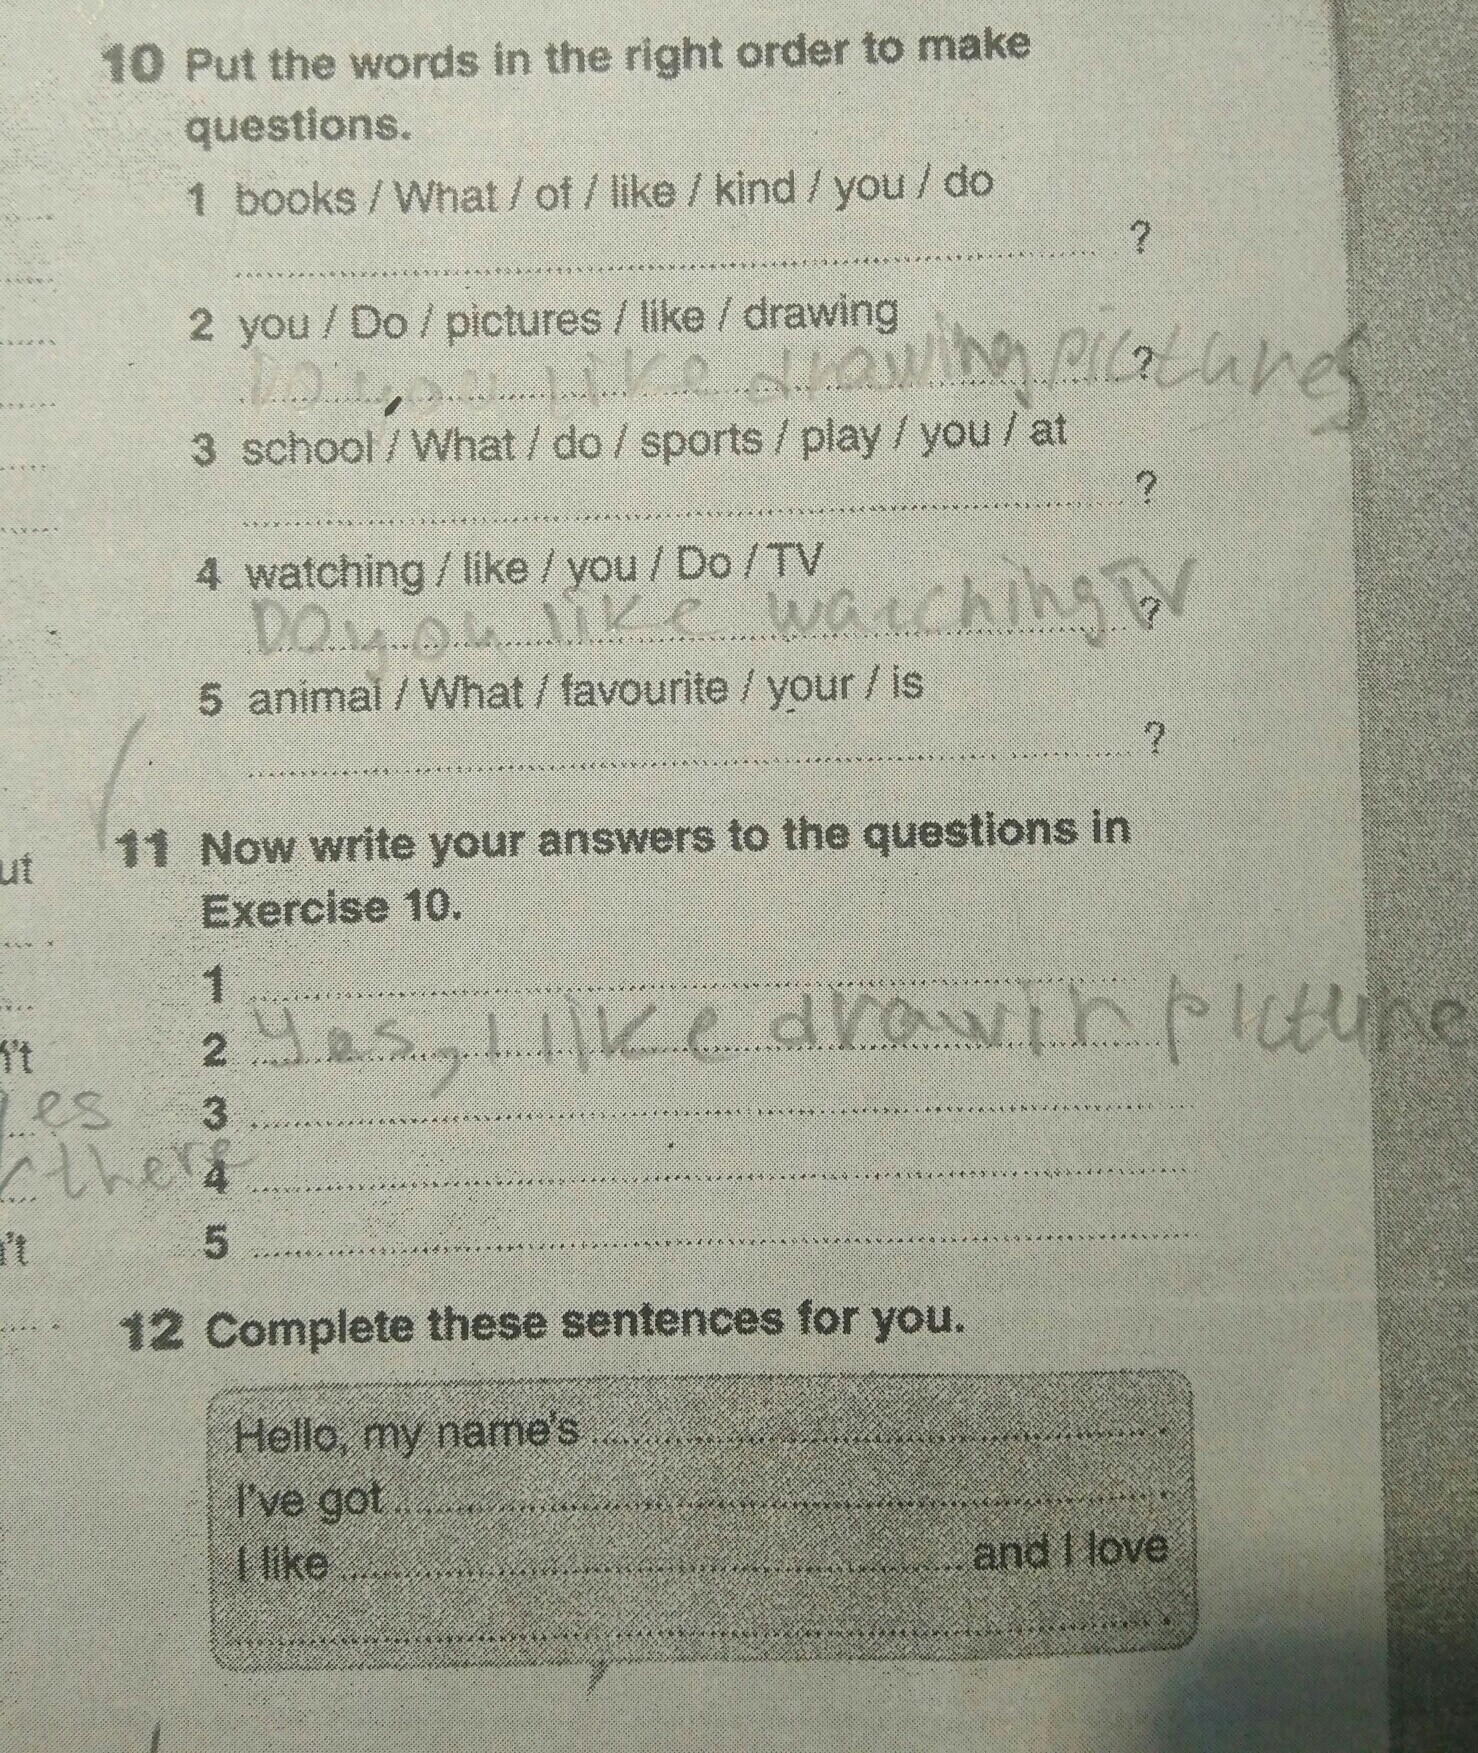 10 Put the words in the right order to make
questions.
1 books / What / of / like / kind / you / do
?
2 you / Do / pictures / like / drawing
Do you like drawing pictures ?
3 school / What / do / sports / play / you / at
?
4 watching / like / you / Do / TV
Do you like watching TV ?
5 animal / What / favourite / your / is
?
11 Now write your answers to the questions in
Exercise 10.
1
2 Yes, I like drawin picture
3
4
5
12 Complete these sentences for you.
Hello, my name's .
I've got .
I like and I love
.
ut
n't
yes
there
n't